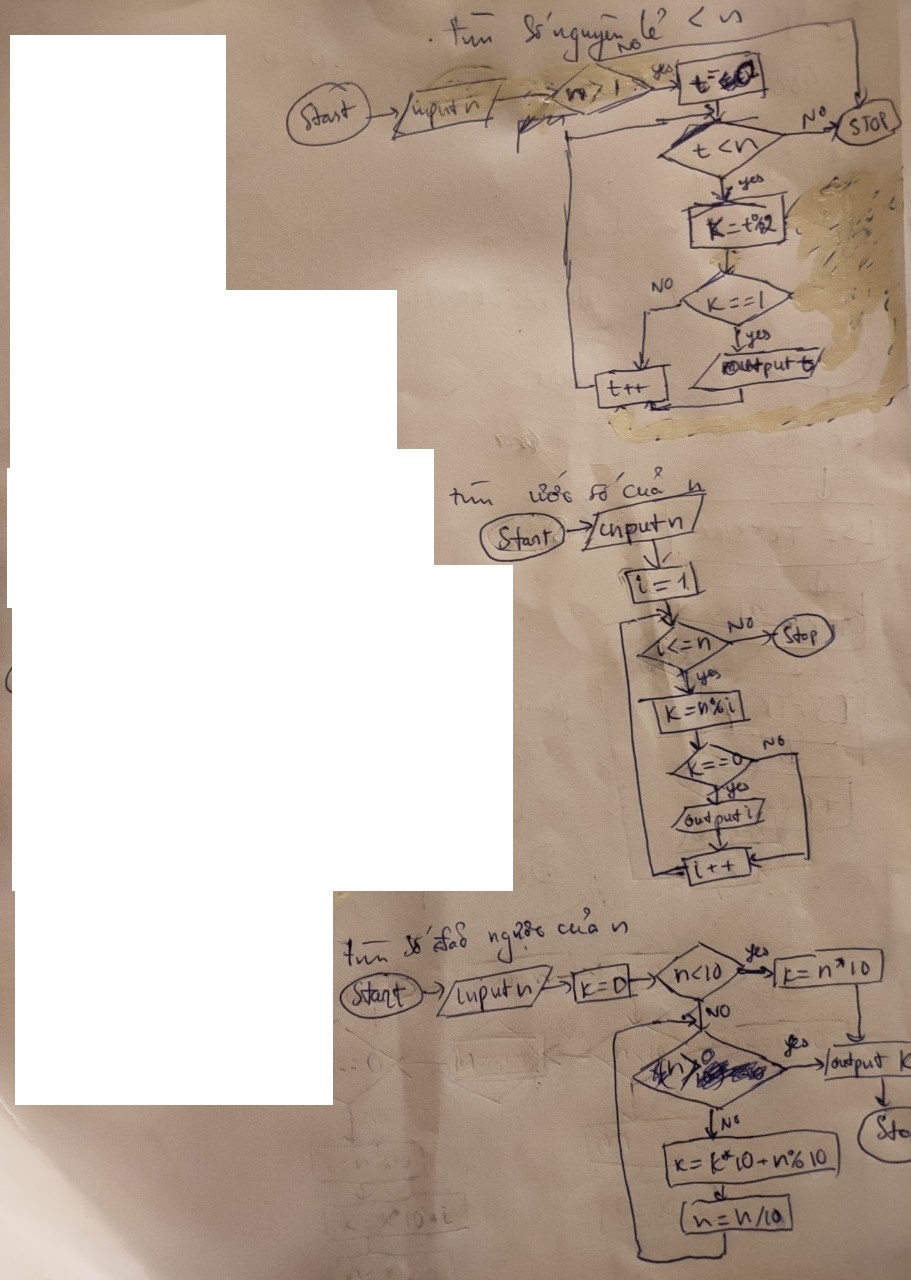 tìm số nguyên lẻ < n
NO
Start
input n
n > 1
yes
t =
t < n
NO
STOP
yes
K = t%2
K == 1
NO
yes
output t
t++
tìm ước số của n
Start
input n
i = 1
i <= n
NO
Stop
yes
K = n%i
K == 0
NO
yes
output i
i++
tìm số đảo ngược của n
Start
input n
K = 0
n < 10
yes
K = n*10
NO
n > 0
yes
output K
Sto
NO
K = K*10 + n%10
n = n/10